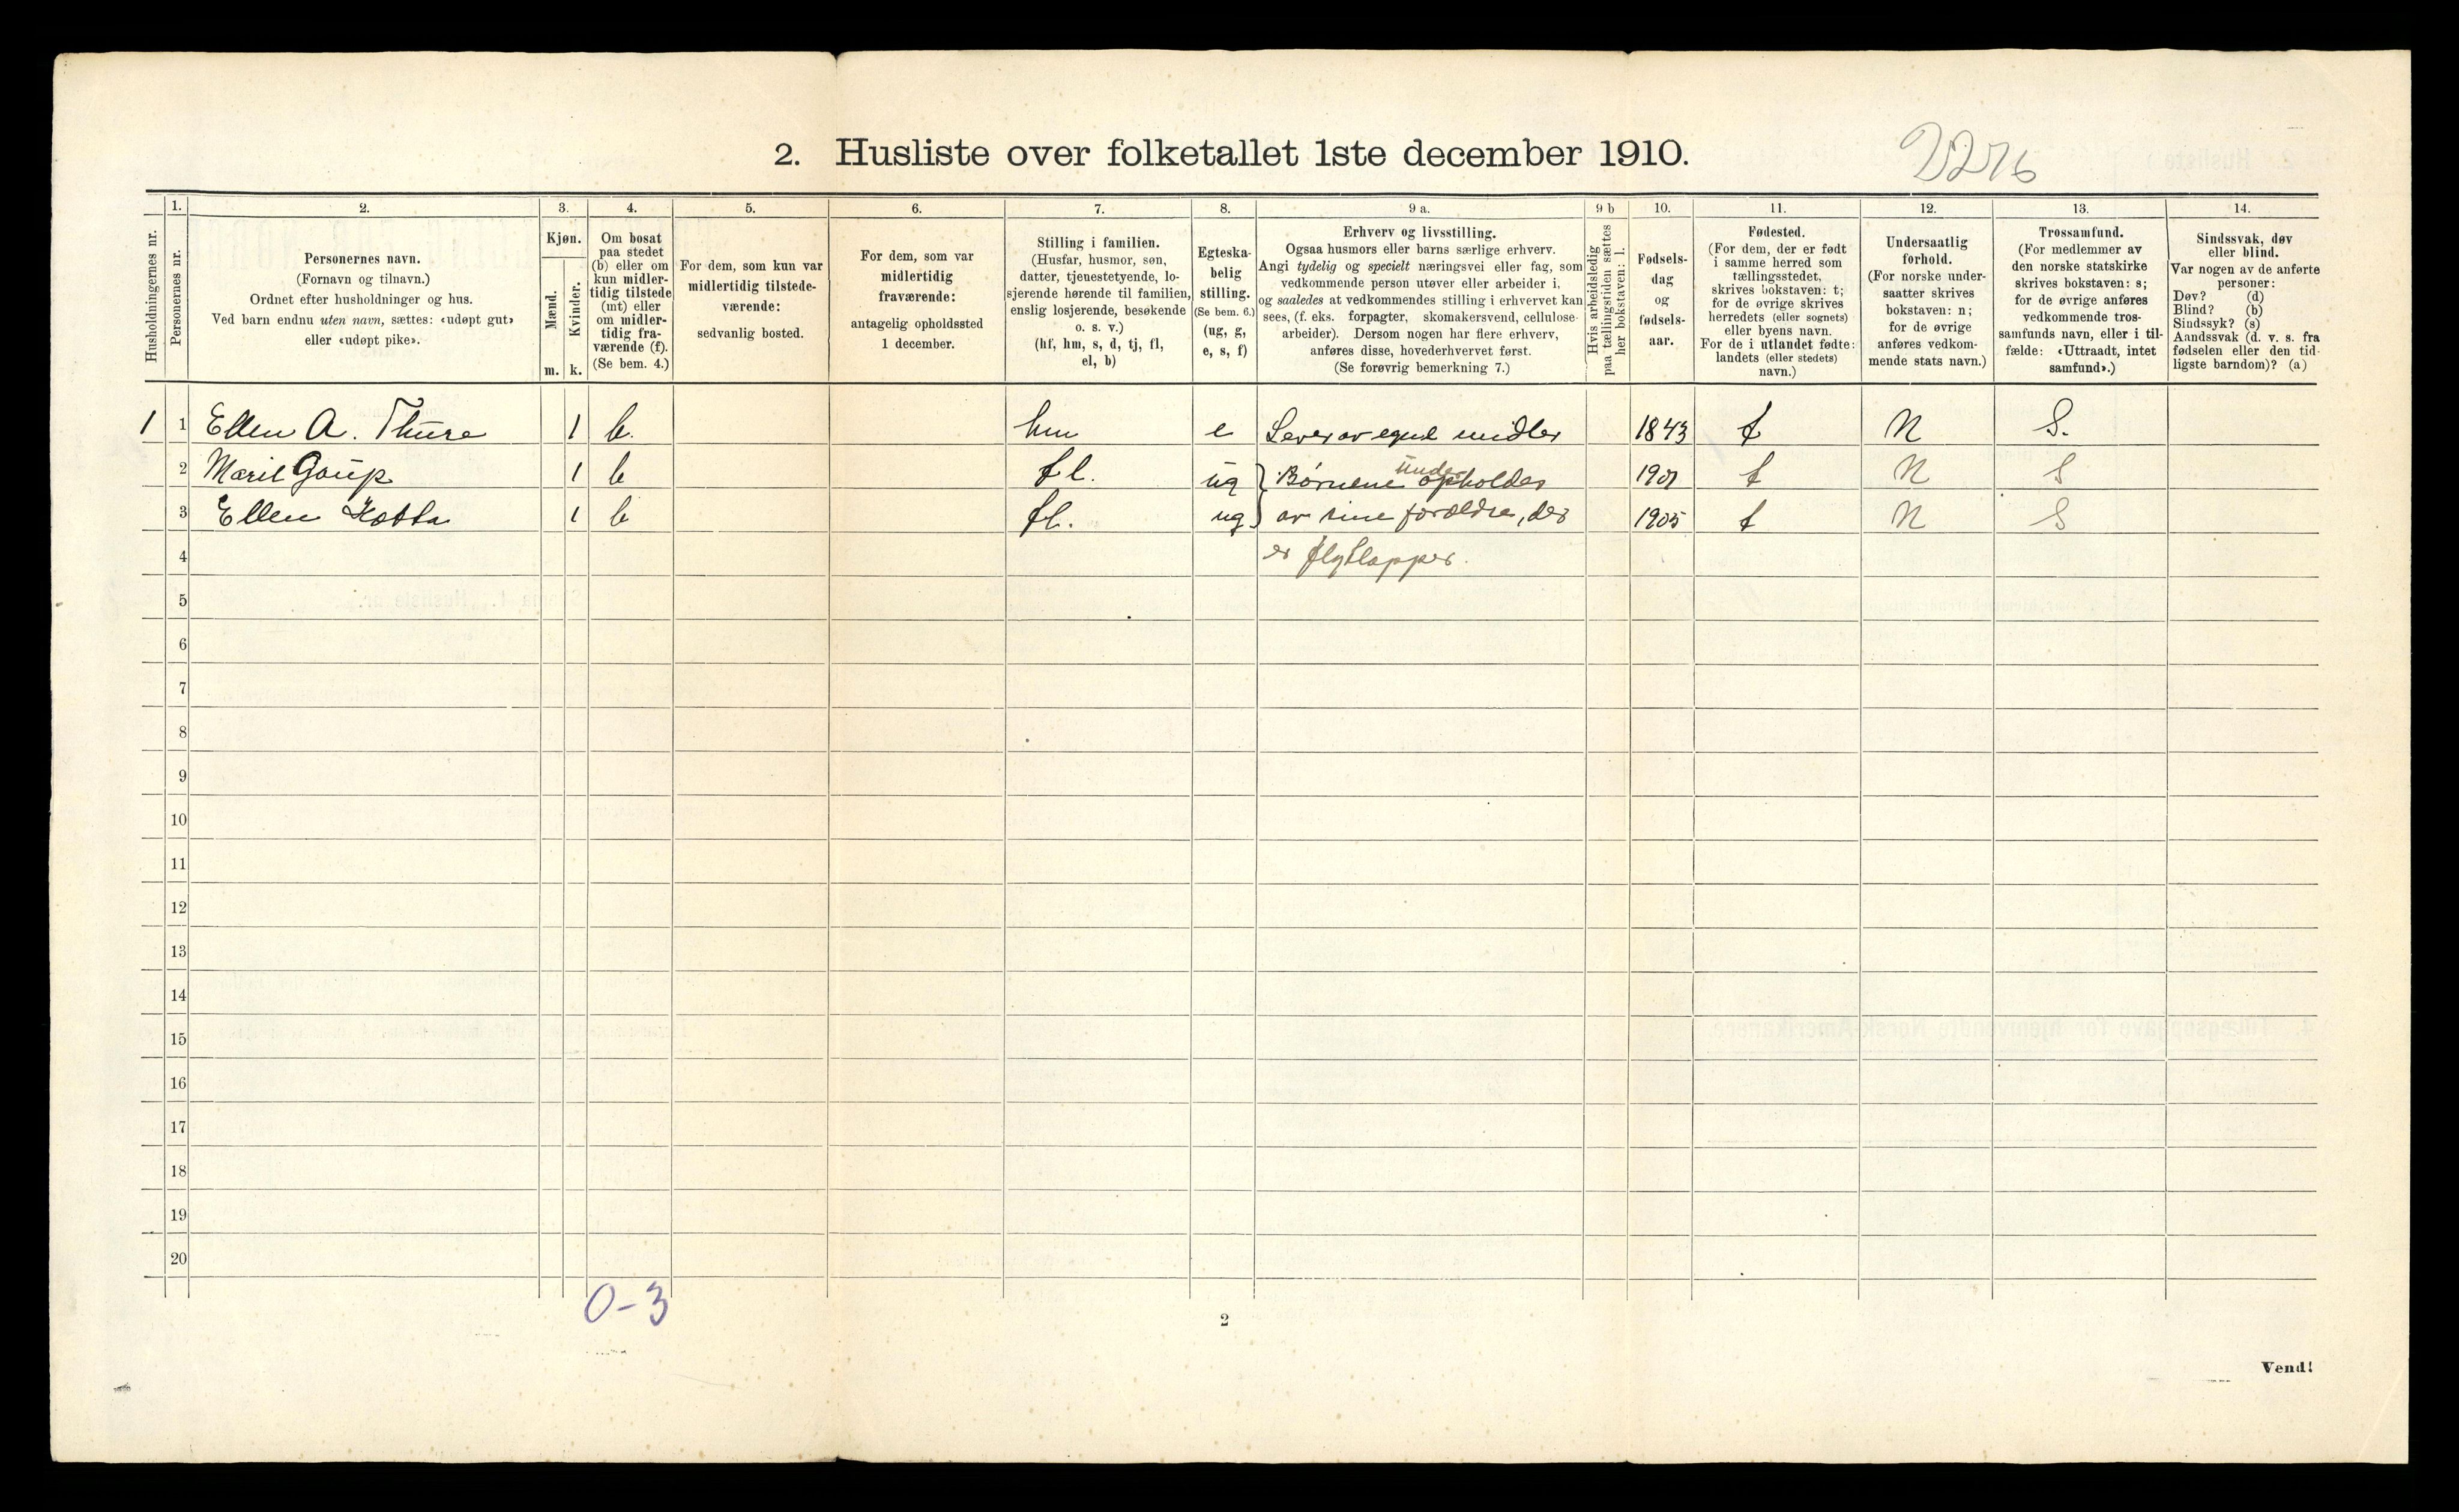 2. Husliste over folketallet 1ste december 1910.
Husholdningernes nr.
1.
Personernes nr.
2.
Personernes navn.
(Fornavn og tilnavn.)
Ordnet efter husholdninger og hus.
Ved barn endnu uten navn, sættes: «udøpt gut»
eller «udøpt pike».
3.
Kjøn.
Mænd.
Kvinder.
m. k.
4.
Om bosat
paa stedet
(b) eller om
kun midler-
tidig tilstede
(mt) eller
om midler-
tidig fra-
værende (f).
(Se bem. 4.)
5.
For dem, som kun var
midlertidig tilstede-
værende:
sedvanlig bosted.
6.
For dem, som var
midlertidig
fraværende:
antagelig opholdssted
1 december.
7.
Stilling i familien.
(Husfar, husmor, søn,
datter, tjenestetyende, lo-
sjerende hørende til familien,
enslig losjerende, besøkende
o. s. v.)
(hf, hm, s, d, tj, fl,
el, b)
8.
Egteska-
belig
stilling.
(Se bem. 6.)
(ug, g,
e, s, f)
9 a.
Erhverv og livsstilling.
Ogsaa husmors eller barns særlige erhverv.
Angi tydelig og specielt næringsvei eller fag, som
vedkommende person utøver eller arbeider i,
og saaledes at vedkommendes stilling i erhvervet kan
sees, (f. eks. forpagter, skomakersvend, cellulose-
arbeider). Dersom nogen har flere erhverv,
anføres disse, hovederhvervet først.
(Se forøvrig bemerkning 7.)
9 b
Hvis arbeidsledig
paa tællingstiden sættes
her bokstaven: l.
10.
Fødsels-
dag
og
fødsels-
aar.
11.
Fødested.
(For dem, der er født
i samme herred som
tællingsstedet,
skrives bokstaven: t;
for de øvrige skrives
herredets (eller sognets)
eller byens navn.
For de i utlandet fødte:
landets (eller stedets)
navn.)
12.
Undersaatlig
forhold.
(For norske under-
saatter skrives
bokstaven: n;
for de øvrige
anføres vedkom-
mende stats navn.)
13.
Trossamfund.
(For medlemmer av
den norske statskirke
skrives bokstaven: s;
for de øvrige anføres
vedkommende tros-
samfunds navn, eller i til-
fælde: «Uttraadt, intet
samfund».)
14.
Sindssvak, døv
eller blind.
Var nogen av de anførte
personer:
Døv? (d)
Blind? (b)
Sindssyk? (s)
Aandssvak (d. v. s. fra
fødselen eller den tid-
ligste barndom)? (a)
1 1 Ellen A. Thure 1 b. hm e Lever av egne midler 1843 t N S.
2 Marit Gaup 1 b fl. ug } Børnene under opholdes 1901 t N S
3 Ellen Kotta 1 b fl. ug } av sine forældre, der 1905 t N S
4 er flytlapper.
5
6
7
8
9
10
11
12
13
14
15
16
17
18
19
20
0-3
2
Vend!